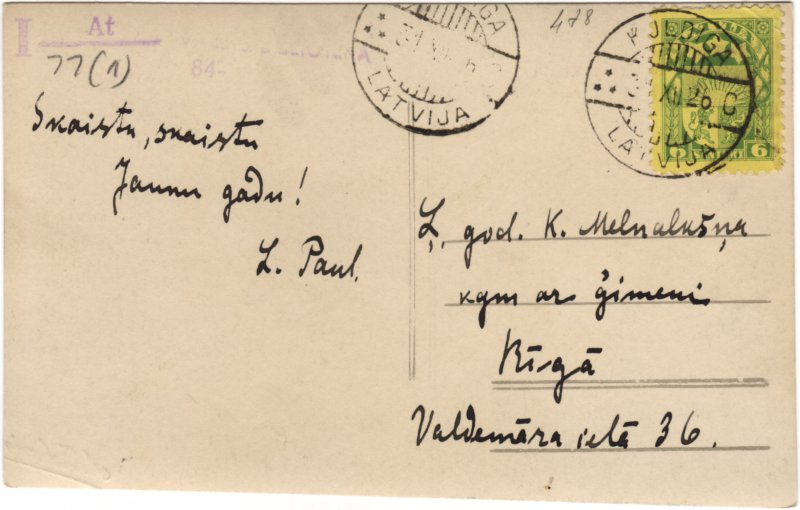 I At
84-
77(1)
478
KULDIGA
31 XII 26 C
LATVIJA
KULDIGA
XII 26 C
LATVIJA
6 6
Skaistu, skaistu
Jaunu gadu!
L. Paul.
Ļ. god. K. Melnalkšņa
kgm ar ģimeni
Rīgā
Valdemāra ielā 36.